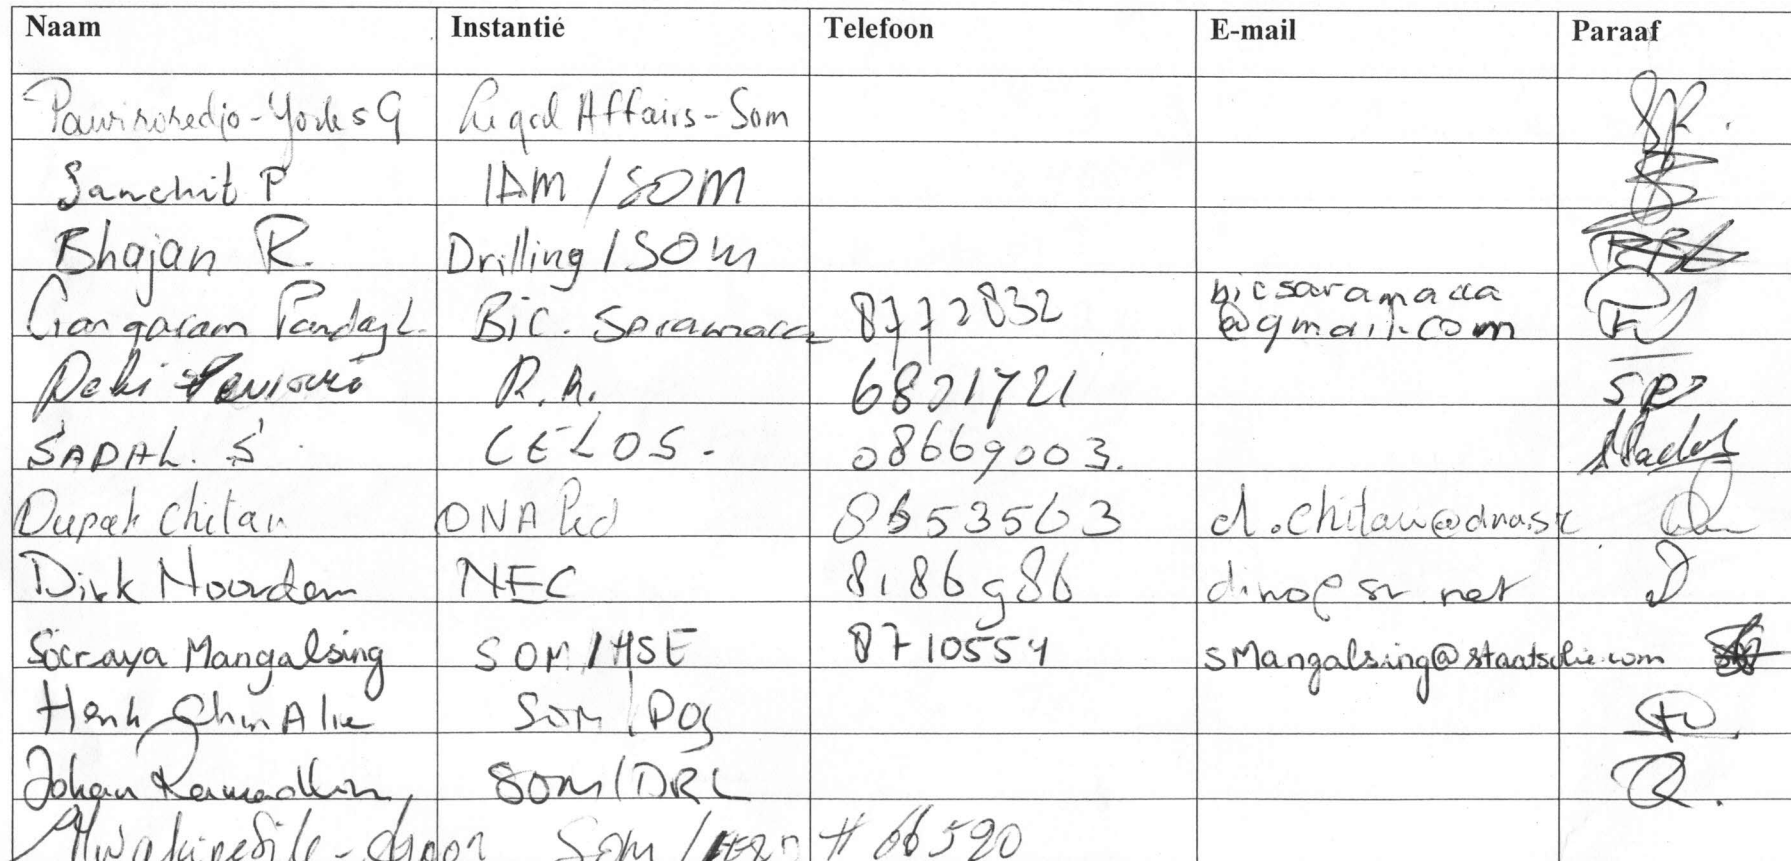 Naam Instantié Telefoon E-mail Paraaf
Pawiroredjo-Yorks G Legal Affairs-Som
Sanchit P IAM/SOM
Bhajan R. Drilling/SOM
Gangaram Panday L. BiC. Saramacca 8772832 bicsaramacca
@gmail.com
R.R. 6801721
SADAL. S CELOS. 08669003.
Dupak Chitan DNA 8653563 d.chitan@dna.sr
Dirk Noordam NEC 8186986 dino@sr.net
Soeraya Mangalsing SOM/HSE 8710554 SMangalsing@staatsolie.com
Henk Chin A Lie SOM/POg
Johan Ramadhin SOM/DRL
SOM / # 66590